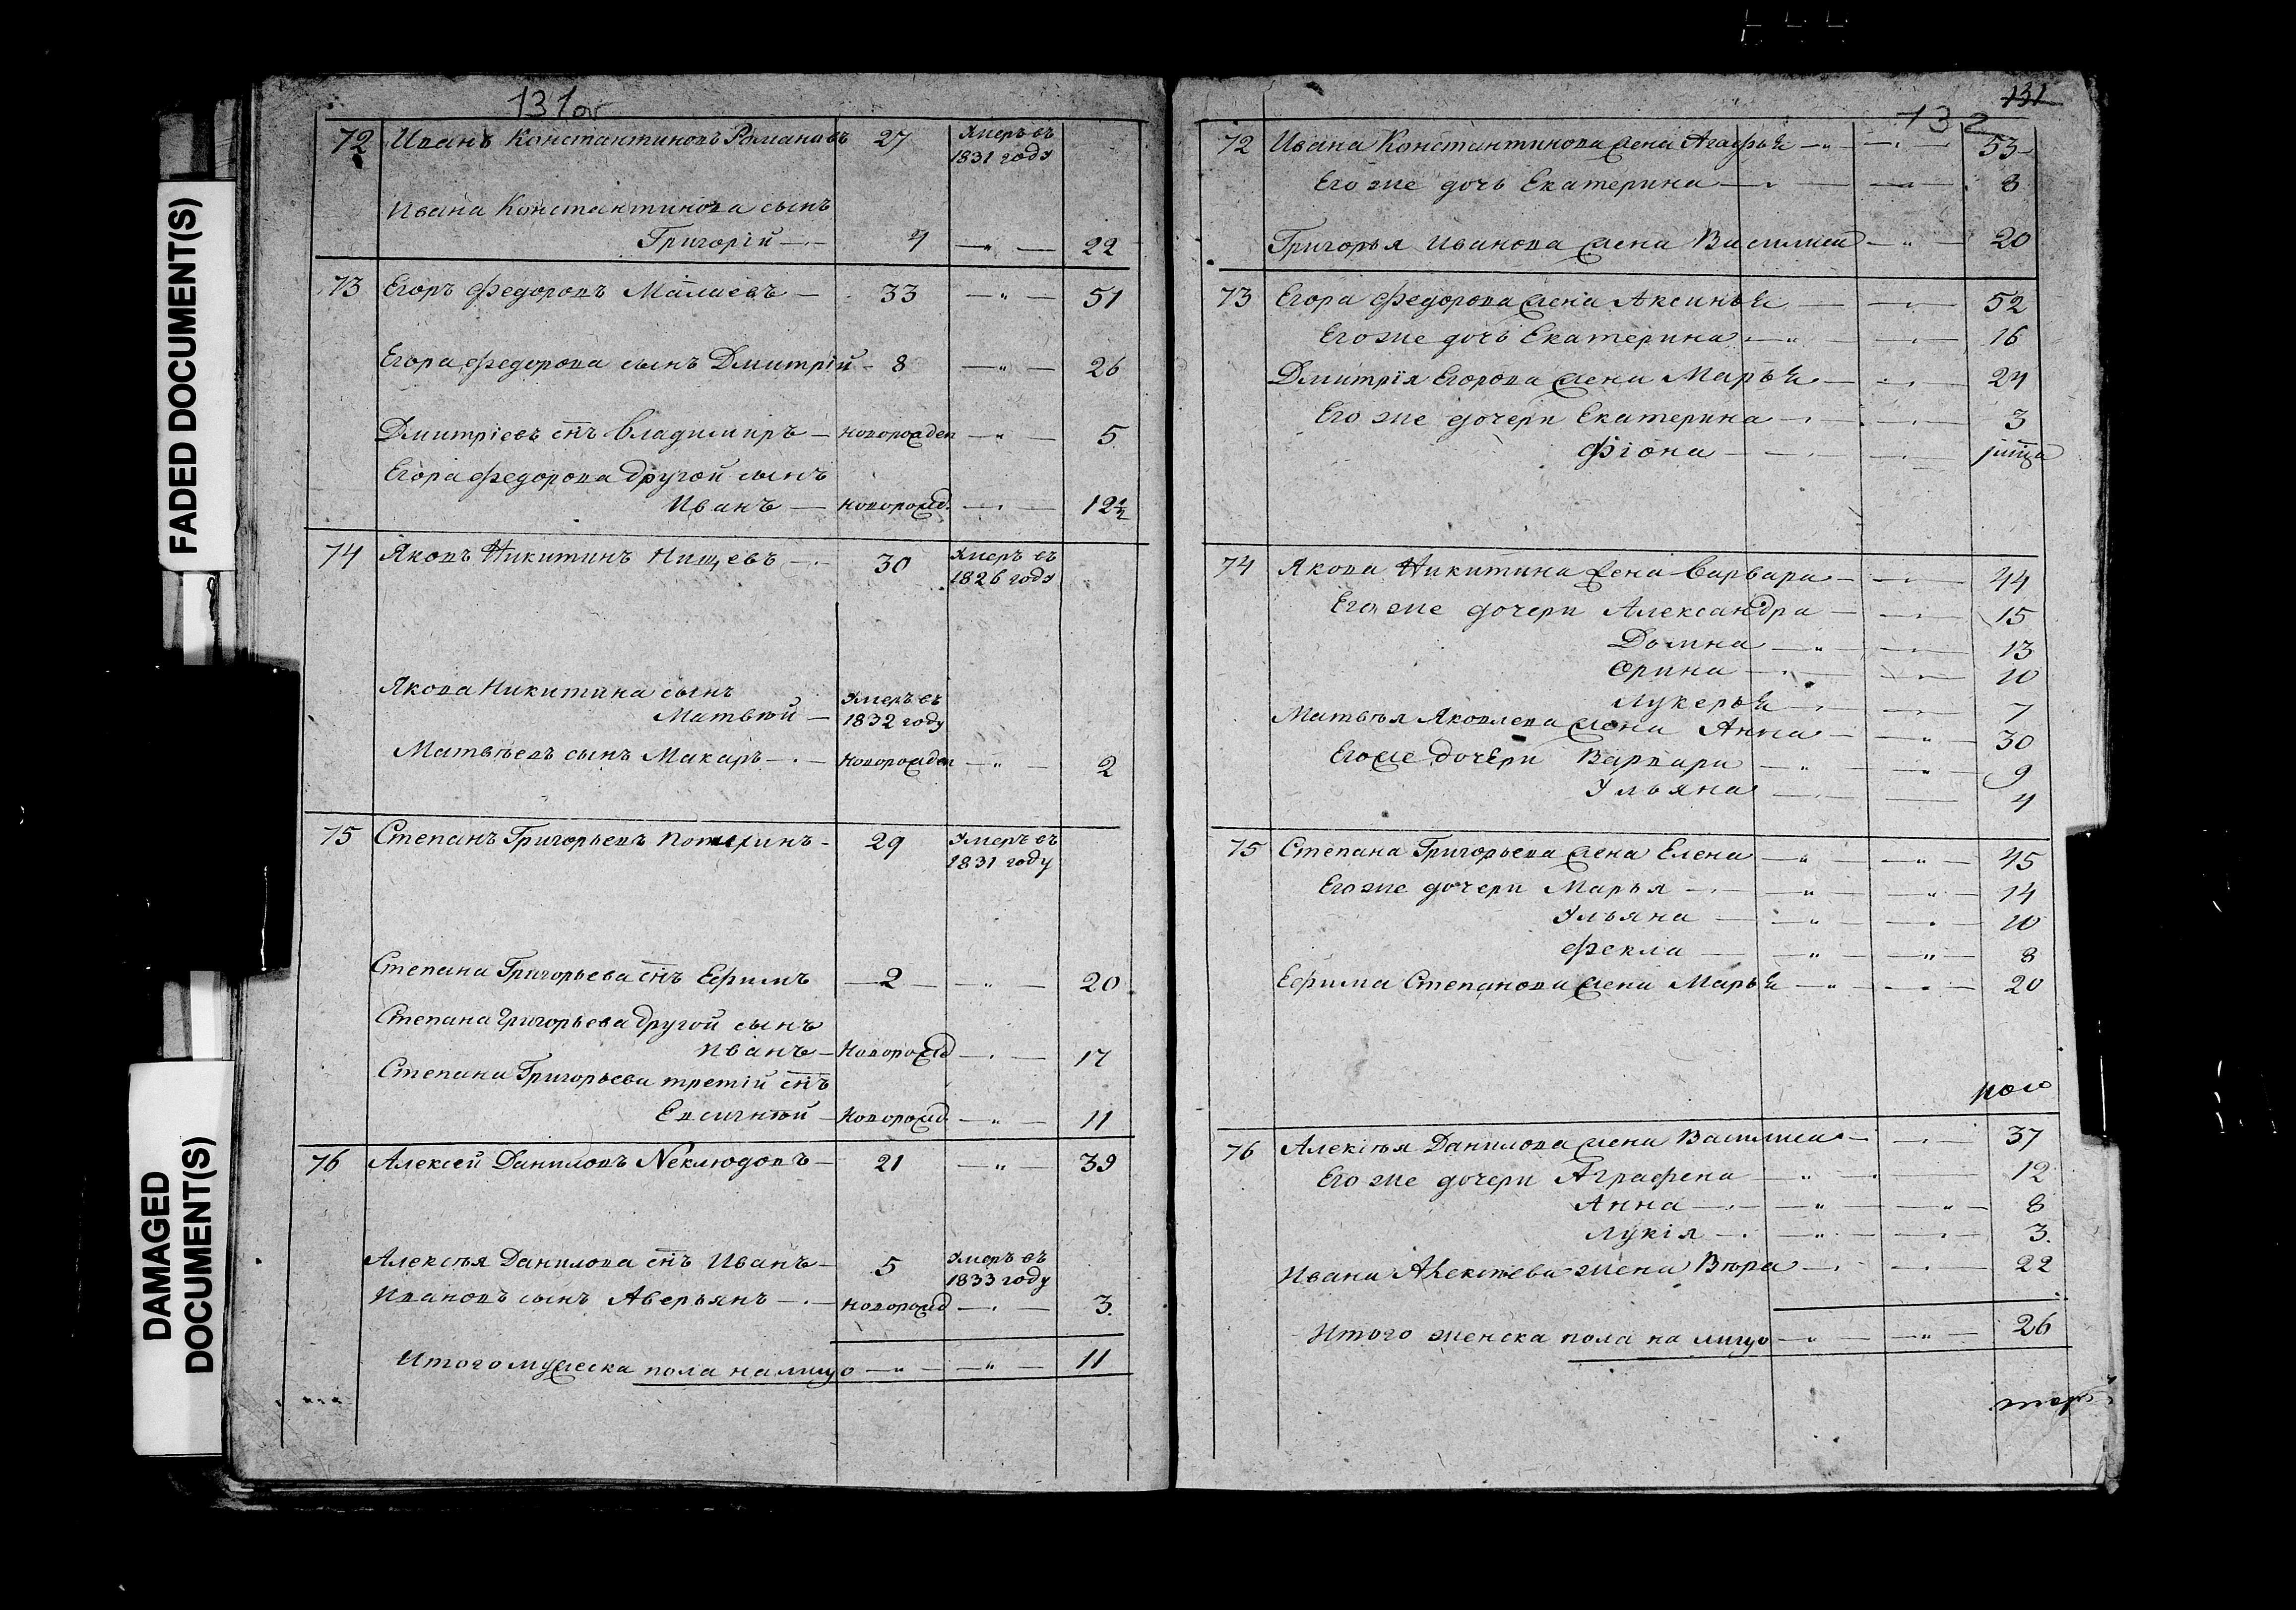 FADED DOCUMENT(S)
DAMAGED DOCUMENT(S)
131об
72 Иванъ Константиновъ Романовъ 27 Умеръ въ 1831 году
Ивана Константинова сынъ
Григорій — 4 — " — 22
73 Егоръ Федоровъ Малаевъ — 33 — " — 51
Егора Федорова сынъ Дмитрій — 8 — " — 26
Дмитріевъ снъ Владимиръ — новорожден — " — 5
Егора Федорова другой сынъ
Иванъ — новорожд. — " — 12½
74 Яковъ Никитинъ Нищевъ — 30 Умеръ въ 1826 году
Якова Никитина сынъ
Матвѣй — Умеръ въ 1832 году
Матвѣевъ сынъ Макаръ — новорожден — " — 2
75 Степанъ Григорьевъ — 29 Умеръ въ 1831 году
Степана Григорьева снъ Ефимъ — 2 — " — 20
Степана Григорьева другой сынъ
Иванъ — новорожд — " — 17
Степана Григорьева третій снъ
Евсигнѣй — новорожд — " — 11
76 Алексей Даниловъ Неклюдовъ — 21 — " — 39
Алексѣя Данилова снъ Иванъ — 5 Умеръ въ 1833 году
Ивановъ сынъ Аверьянъ — новорожд — " — 3.
Итого мужеска пола на лицо — " — " — 11
131
132
72 Ивана Константинова жена Агафья — " — " — 53
Его же дочь Екатерина — " — " — 8
Григорья Иванова жена Василиса — " — 20
73 Егора Федорова жена Аксинья — " — 52
Его же дочь Екатерина — " — " — 16
Дмитрія Егорова жена Марья — " — 24
Его же дочери Екатерина — " — " — 3
Фіона — " — " —
74 Якова Никитина жена Варвара — " — 44
Его же дочери Александра — " — 15
Домна — " — " — 13
Орина — " — " — 10
Лукерья — " — " — 7
Матвѣя Яковлева жена Анна — " — 30
Его же дочери Варвара — " — " — 9
Ульяна — " — 4
75 Степана Григорьева жена Елена — " — " — 45
Его же дочери Марья — " — " — 14
Ульяна — " — " — 10
Фекла — " — " — 8
Ефима Степанова жена Марья — " — " — 20
76 Алексѣя Данилова жена Василиса — " — 37
Его же дочери Аграфена — " — 12
Анна — " — " — 8
Лукія — " — " — 3.
Ивана Алексѣева жена Вѣра — " — 22
Итого женска пола на лицо — " — " — 26